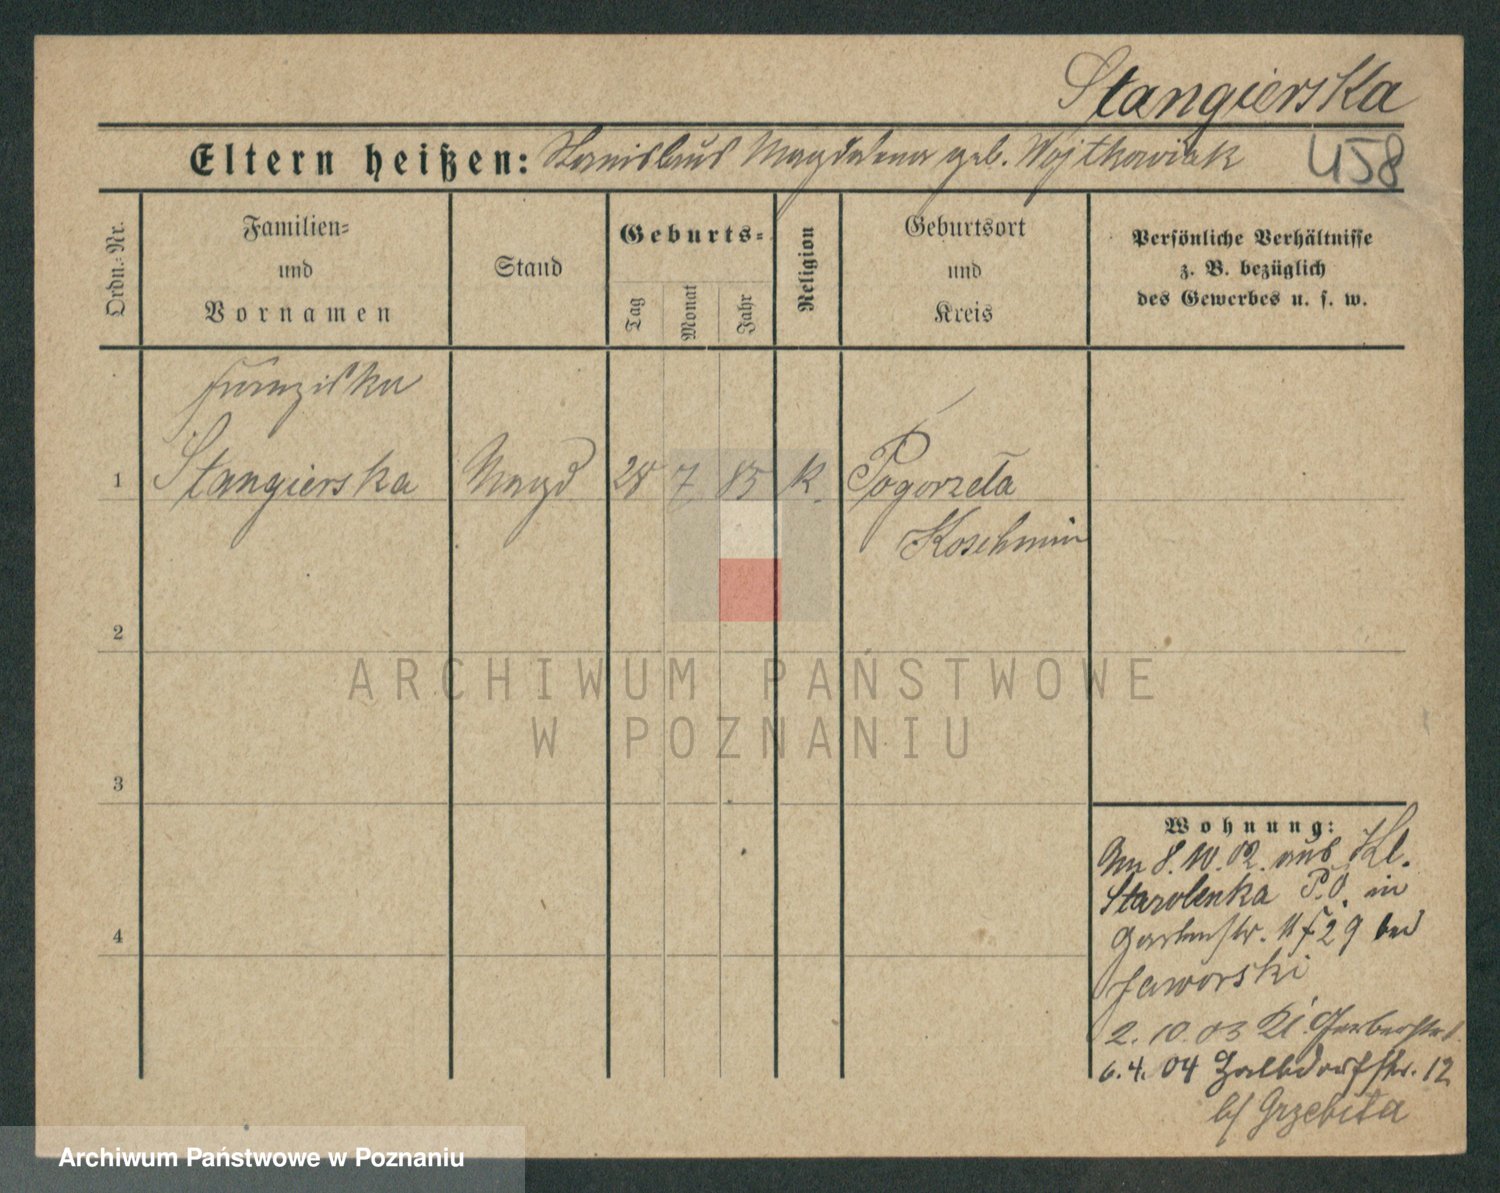 Stangierska
458
Eltern heißen: Stanislaus Magdalena geb. Wojtkowiak
Ordn.-Nr.
Familien-
und
Vornamen
Stand
Geburts-
Tag
Monat
Jahr
Religion
Geburtsort
und
Kreis
Persönliche Verhältnisse
z. B. bezüglich
des Gewerbes u. s. w.
Franziska
1 Stangierska Magd 28 7 85 K. Pogorzela
Koschmin
2
ARCHIWUM PAŃSTWOWE
W POZNANIU
3
4
Wohnung:
Am 8. 10. 02. aus Kl.
Starolenka P.O. in
Gartenstr. 29 bei
Jaworski
2. 10. 03 Kl. Gerberstr.
6. 4. 04 Halbdorfstr. 12
b/ Grzebita
Archiwum Państwowe w Poznaniu